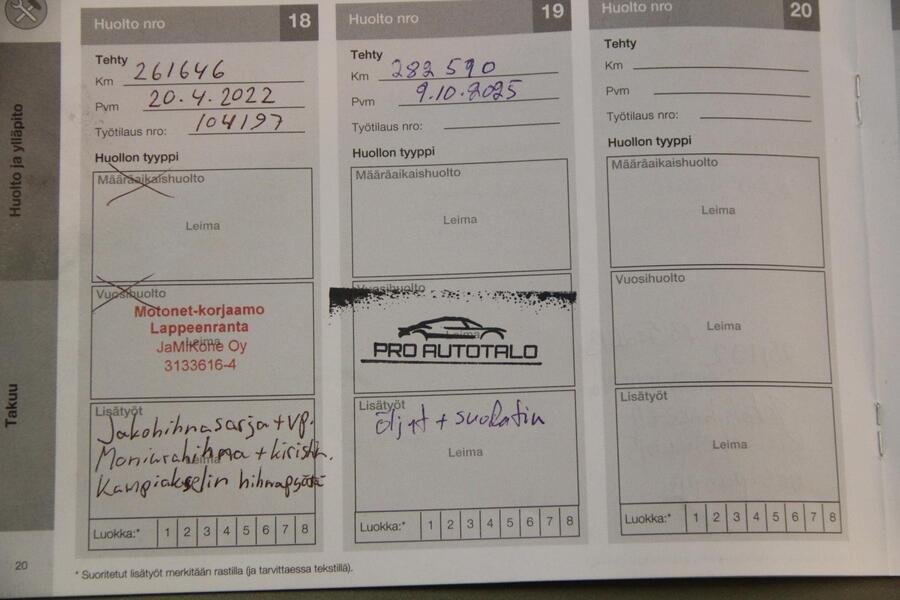 Huolto ja ylläpito
Takuu
Huolto nro 18
Tehty
Km 261646
Pvm 20.4.2022
Työtilaus nro: 104197
Huollon tyyppi
Määräaikaishuolto
Leima
Vuosihuolto
Motonet-korjaamo
Lappeenranta
Leima
JaMiKone Oy
3133616-4
Lisätyöt
Jakohihnasarja + vp.
Moniurahihna + kiristin.
Leima
Kampiakselin hihnapyörä
Luokka:* 1 2 3 4 5 6 7 8
Huolto nro 19
Tehty
Km 282 590
Pvm 9.10.2025
Työtilaus nro:
Huollon tyyppi
Määräaikaishuolto
Leima
Vuosihuolto
Leima
PRO AUTOTALO
Lisätyöt
öljyt + suodatin
Leima
Luokka:* 1 2 3 4 5 6 7 8
Huolto nro 20
Tehty
Km
Pvm
Työtilaus nro:
Huollon tyyppi
Määräaikaishuolto
Leima
Vuosihuolto
Leima
Lisätyöt
Leima
Luokka:* 1 2 3 4 5 6 7 8
20
* Suoritetut lisätyöt merkitään rastilla (ja tarvittaessa tekstillä).